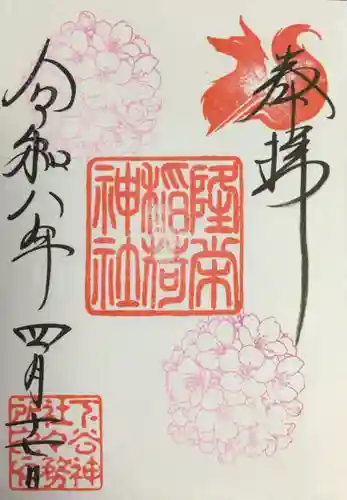 奉拝
隆栄
稲荷
神社
令和八年 四月十七日
下谷神
社社務
所之印